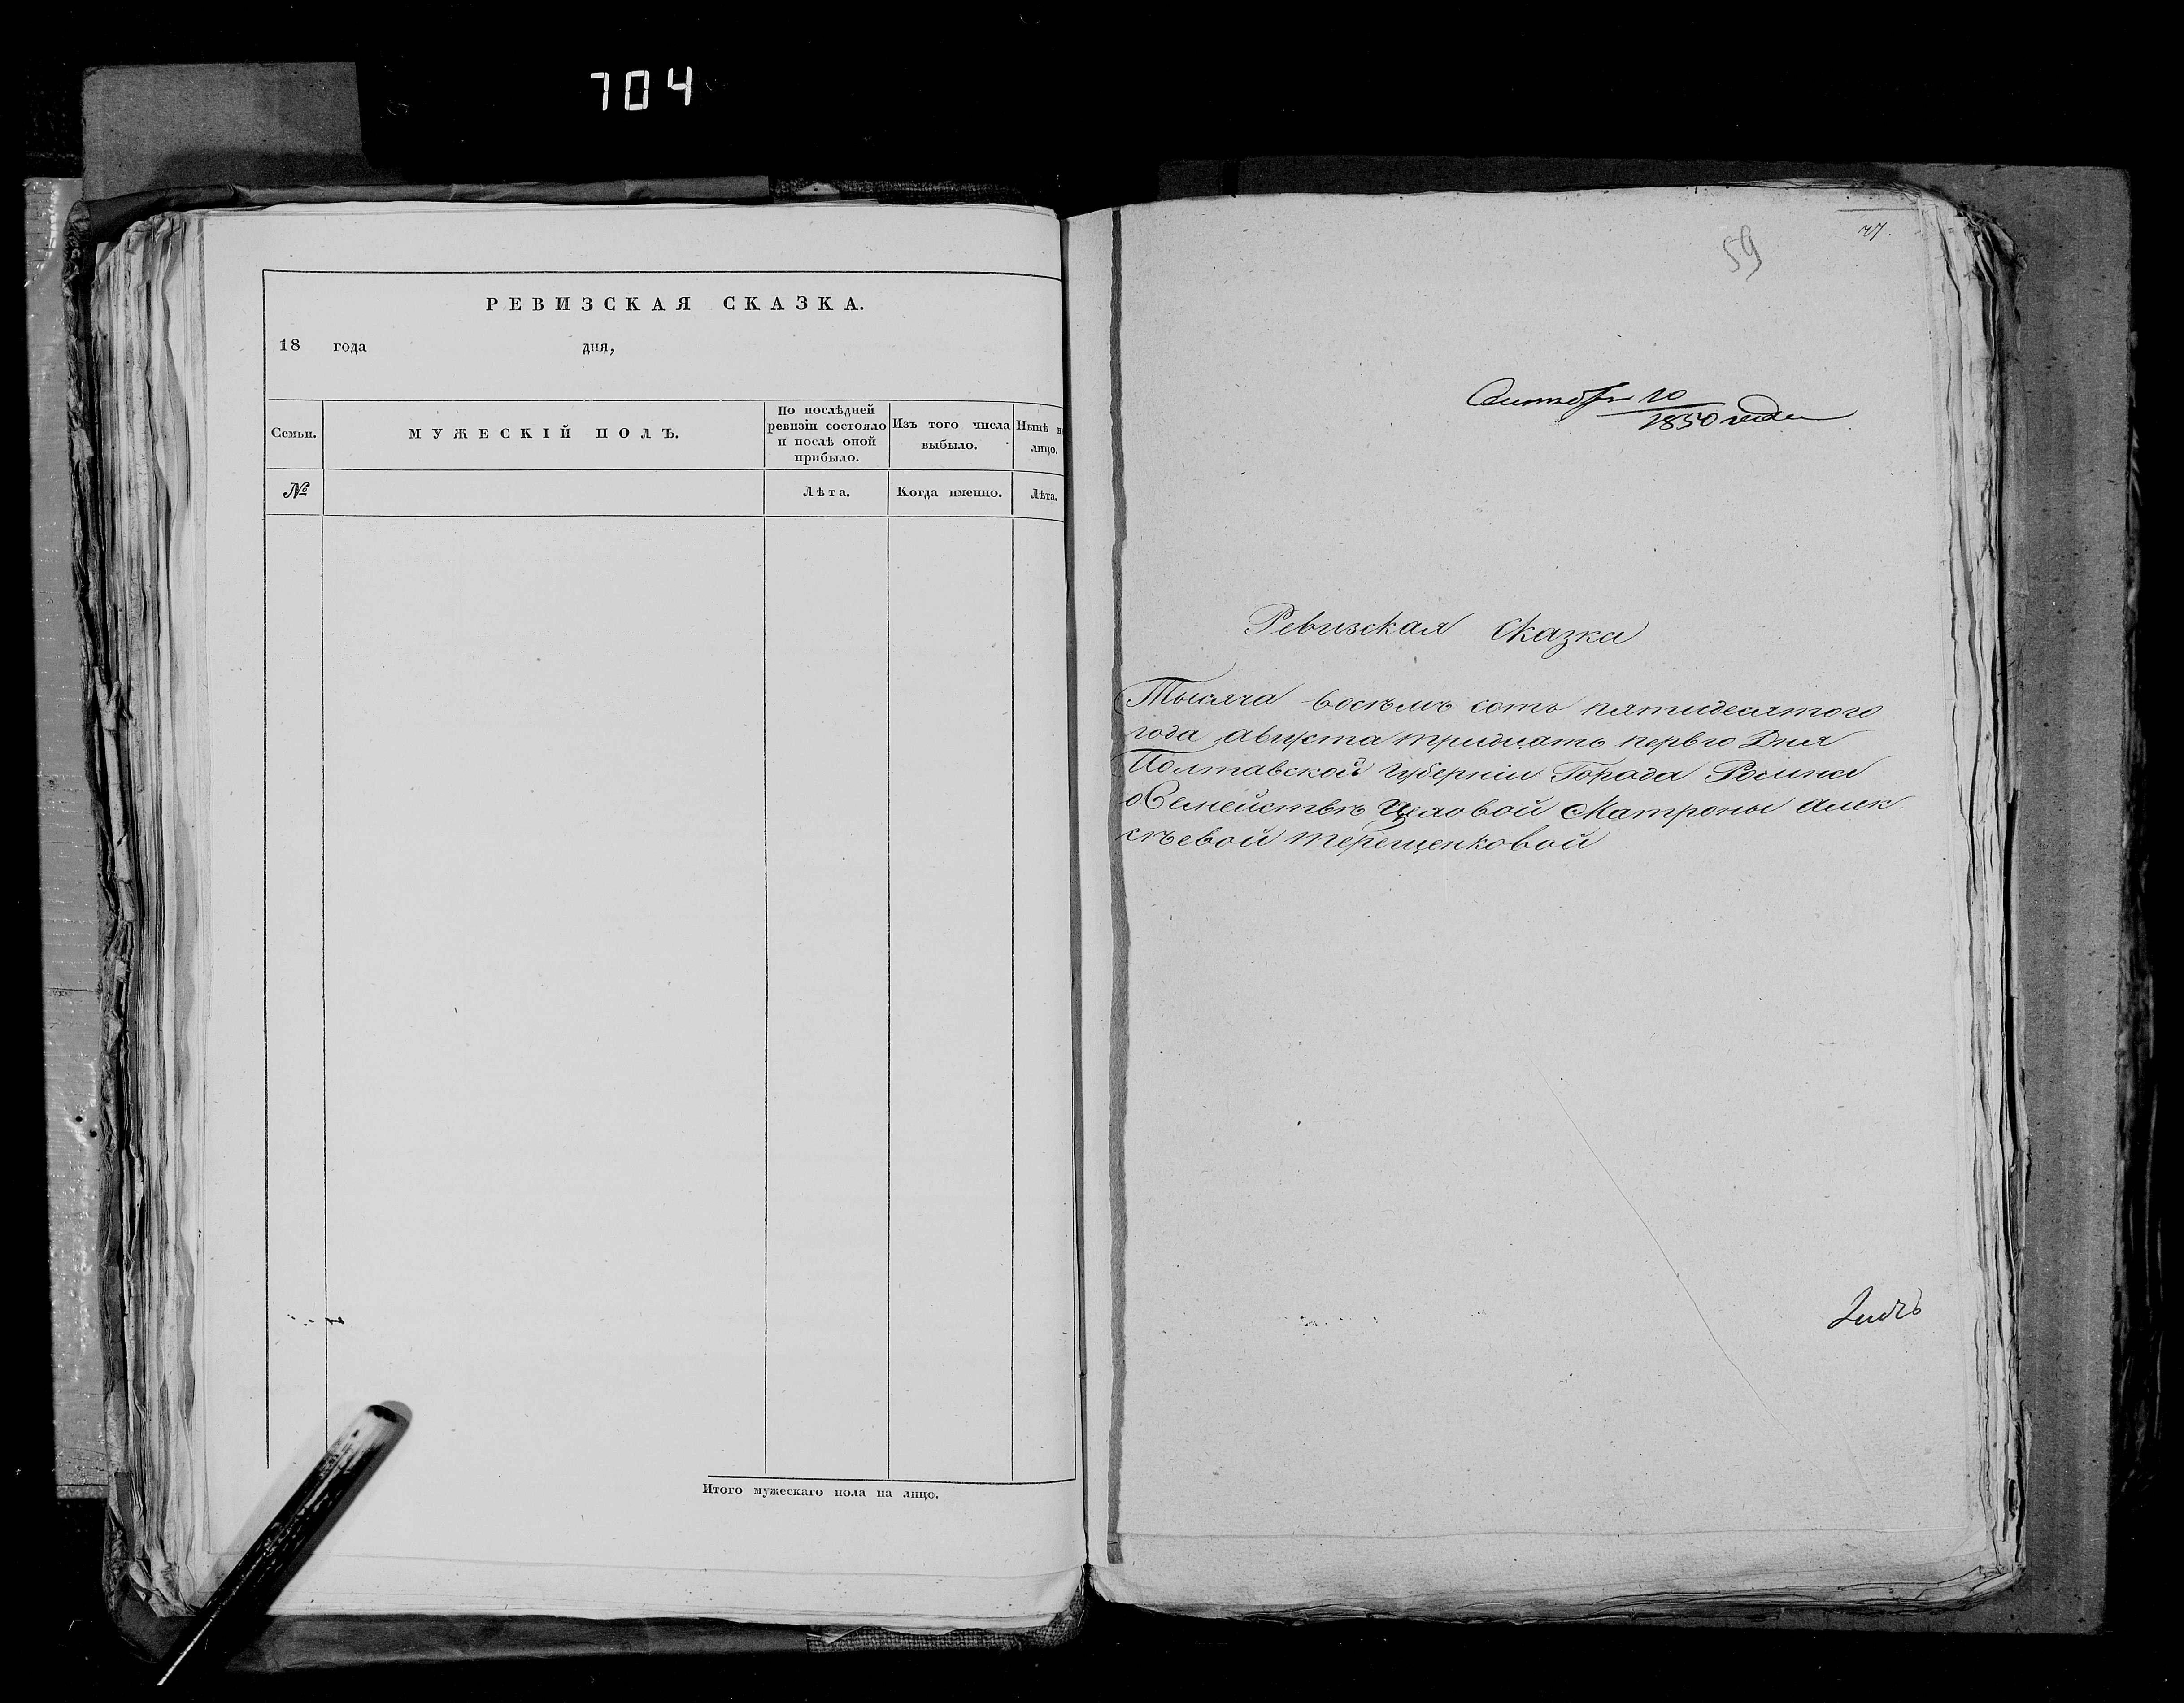 704
РЕВИЗСКАЯ СКАЗКА.
18 года дня,
Семьи.
МУЖЕСКІЙ ПОЛЪ.
По послѣдней
ревизіи состояло
и послѣ оной
прибыло.
Изъ того числа
выбыло.
Нынѣ на
лицо.
№
Лѣта.
Когда именно.
Лѣта.
Итого мужескаго пола на лицо.
59
10
1850 года
Ревизская Сказка
Тысяча восъмъ сотъ пятидесятого
года августа тридцать перво Дня
Полтавской Губерніи Города Ромна
о Семействѣ Матроны Алек
сѣевой Терещенковой